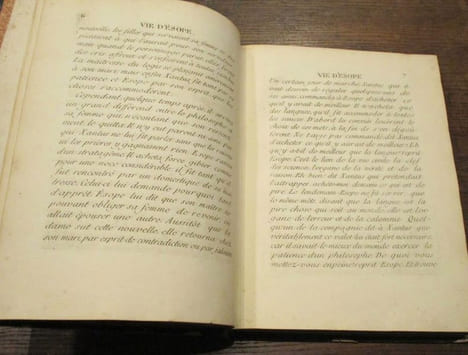 6
VIE D'ÉSOPE
nouvelle les filles qui servaient sa femme se
mais quand le personnage
des cris affreux et s'enfuirent
La maîtresse du logis se plaignit
à son mari; mais enfin Xantus fit tant par sa
patience et Esope par son esprit que les
choses s'accommodèrent.
Cependant quelque temps après il
un grand différend entre le philosophe
sa femme
de le quitta. Il n'y eut parent
que Xantus ne lui fit parler sans que les
ni les prières y gagnassent rien. Esope
d'un stratagème. Il acheta force gibier, comme
pour une noce considérable, et fit tant qu'il
fut rencontré par un domestique de sa
Celui-ci lui demande pourquoi tant
d'apprêt. Esope lui dit que son maître
pouvant obliger sa femme de revenir, en
allait épouser une autre. Aussitôt que la
dame sut cette nouvelle, elle retourna chez
son mari par esprit de contradiction ou par jalousie
VIE D'ÉSOPE
7
Un certain jour de marché Xantus qui
avait dessein de régaler quelques-uns de
ses amis, commanda à Esope d'acheter ce
qu'il y avait de meilleur
les langues, qu'il fit accommoder à toutes
les sauces. D'abord les conviés louèrent le
choix de ce mets; à la fin ils s'en dégoû-
tèrent. Ne t'ai-je pas commandé dit Xantus
d'acheter ce qu'il y aurait de meilleur. Eh
qu'y a-t-il de meilleur que la langue reprit
Esope. C'est le lien de la vie civile la clef
des sciences, l'organe de la vérité et de la
raison. Eh bien! dit Xantus qui prétendait
l'attraper, achète-moi demain ce qui est de
pire. Le lendemain Esope ne fit servir que
le même mets, disant que la langue est la
pire chose qui soit au monde,
de l'erreur et de la calomnie. Quel-
qu'un de la compagnie dit à Xantus que
véritablement ce valet lui était fort nécessaire,
car il savait le mieux du monde exercer la
patience d'un philosophe. De quoi vous
mettez-vous en peine reprit Esope. Et trouve